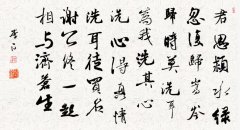 君思潁水綠
忽復歸嵩岑
歸時莫洗耳
為我洗其心
洗心得真情
洗耳徒買名
謝公終一起
相与濟蒼生